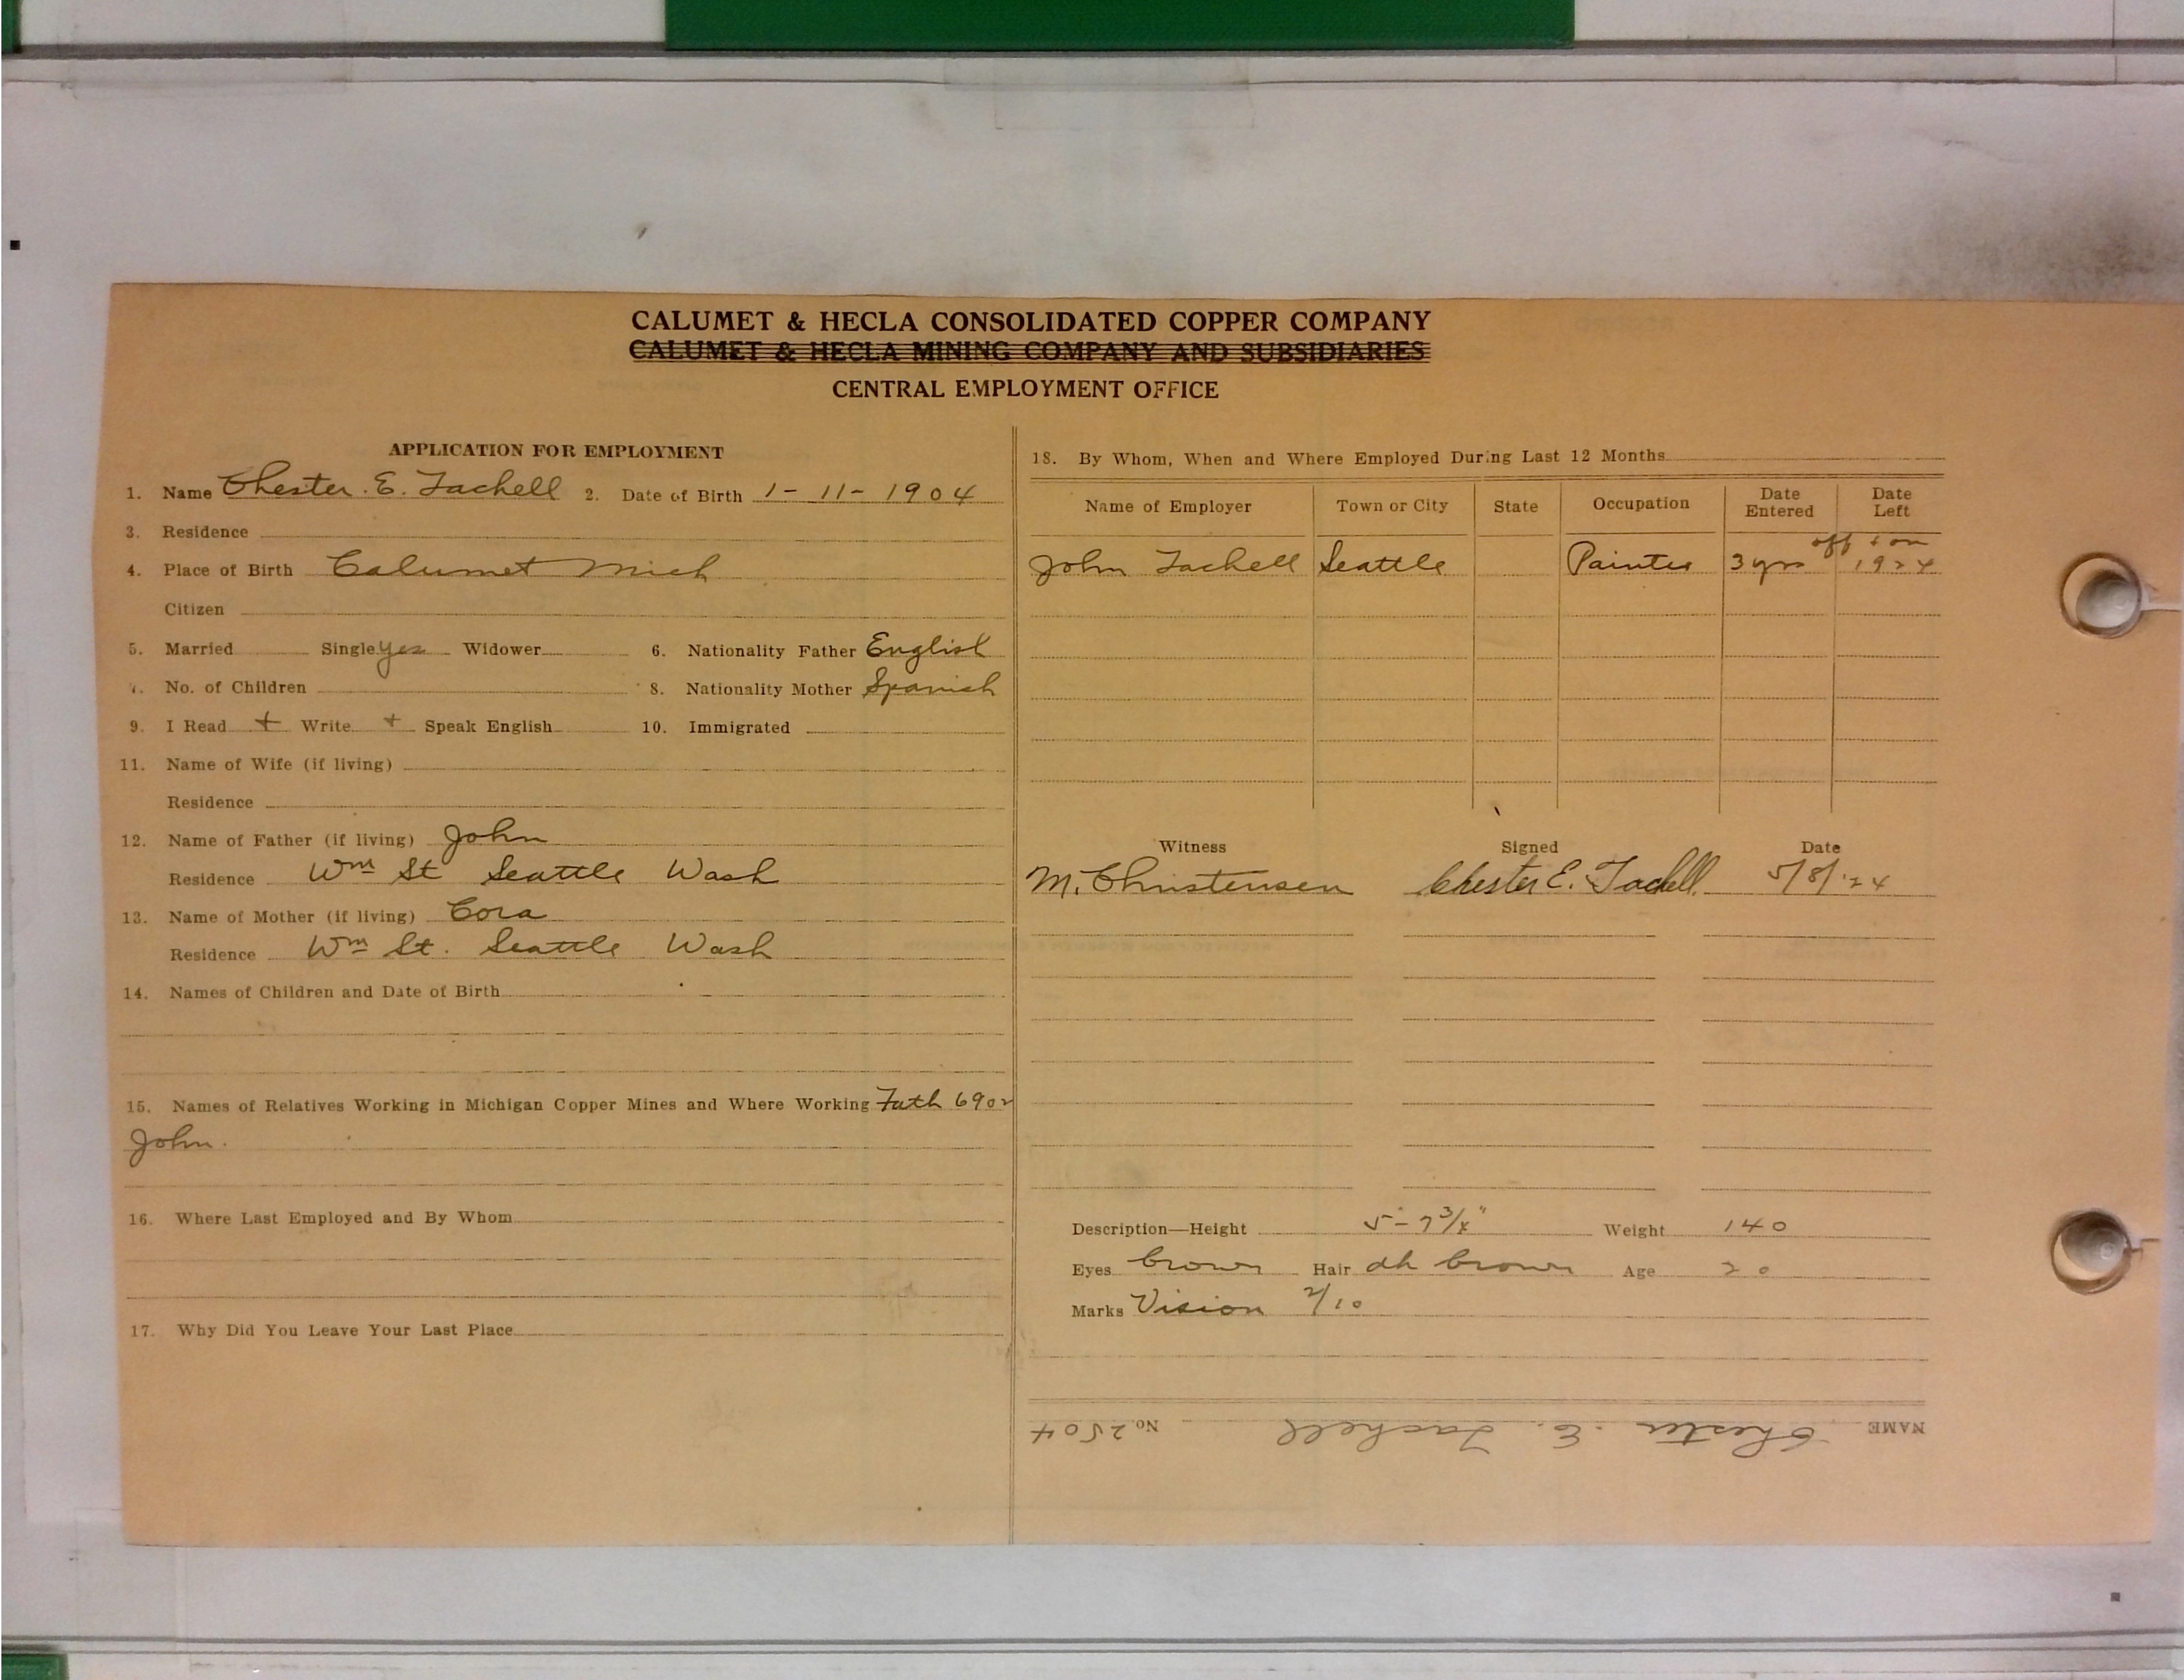 CALUMET & HECLA CONSOLIDATED COPPER COMPANY
CALUMET & HECLA MINING COMPANY AND SUBSIDIARIES
CENTRAL EMPLOYMENT OFFICE
APPLICATION FOR EMPLOYMENT
1. Name Chester. E. Tachell 2. Date of Birth 1-11-1904
3. Residence
4. Place of Birth Calumet Mich
Citizen
5. Married Single yes Widower 6. Nationality Father English
7. No. of Children 8. Nationality Mother Spanish
9. I Read + Write + Speak English 10. Immigrated
11. Name of Wife (if living)
Residence
12. Name of Father (if living) John
Residence Wm St Seattle Wash
13. Name of Mother (if living) Cora
Residence Wm St. Seattle Wash
14. Names of Children and Date of Birth
15. Names of Relatives Working in Michigan Copper Mines and Where Working Fath 6902
John.
16. Where Last Employed and By Whom
17. Why Did You Leave Your Last Place
18. By Whom, When and Where Employed During Last 12 Months
Name of Employer Town or City State Occupation Date Entered Date Left
off + on
John Tachell Seattle Painter 3 yrs 1924
Witness Signed Date
M. Christensen Chester E. Tachell 5/8/24
Description—Height 5-7 Weight 140
Eyes brown Hair dk brown Age 20
Marks Vision 2/10
NAME Chester. E. Tachell No. 2504